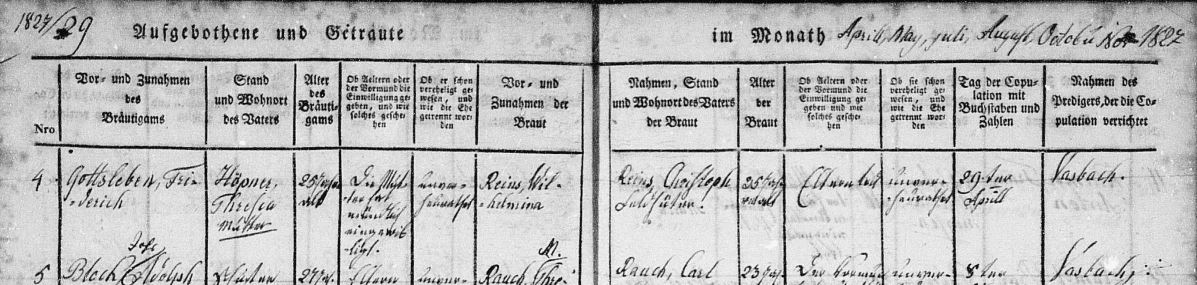 1827/29 Aufgebothene und Getraute im Monath Aprill, May, juli, August, Octobr Nov 1827
Nro
Vor- und Zunahmen
des
Bräutigams
Stand
und Wohnort
des Vaters
Alter
des
Bräuti-
gams
Ob Aeltern oder
der Vormund die
Einwilligung ge-
geben, und wie
solches gesche-
hen
Ob er schon
vereheligt ge-
wesen, und
wie die Ehe
getrennt wor-
den
Vor- und
Zunahmen der
Braut
Nahmen, Stand
und Wohnort des Vaters
der Braut
Alter
der
Braut
Ob Aeltern oder
der Vormund die
Einwilligung ge-
geben und wie
solches gesche-
hen
Ob sie schon
vereheligt ge-
wesen, und
wie die Ehe
getrennt wor-
den
Tag der Copu-
lation mit
Buchstaben und
Zahlen
Nahmen des
Predigers, der die Co-
pulation verrichtet
4
Gottsleben, Frie-
derich
Höpner,
Thresia
Mutter
25 Jahr
alt
Die Mut-
ter hat
mündlich
eingewil-
ligt.
unver-
heurathet
Reins, Wil-
helmina
Reins, Christoph
25 Jahr
alt
Eltern
unver-
heurathet
29 ter
Aprill
Vasbach.
5
Bloch Adolph
27
Eltern
unver-
Rauch, The-
M.
Rauch, Carl
23 Jahr
Der Vormund
unver-
8 ter
Vasbach,